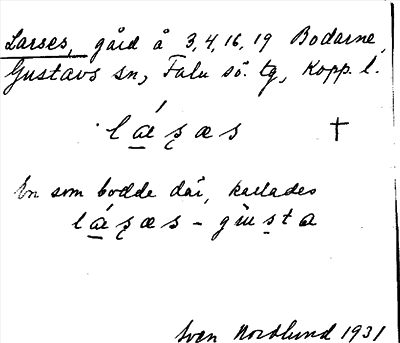 Larses, gård å 3, 4, 16, 19 Bodarne,
Gustavs sn, Falu sö. tg, Kopp. l.
lǽ̱ʂæs †
En som bodde där, kallades
lǽ̱ʂæs - gùs̱ta
Sven Nordlund 1931